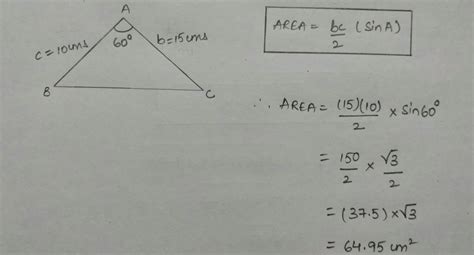 A
60°
c = 10cms
b = 15cms
B
C
AREA = bc/2 (sin A)
∴ AREA = (15)(10)/2 × sin60°
= 150/2 × √3/2
= (37.5) × √3
= 64.95 cm²